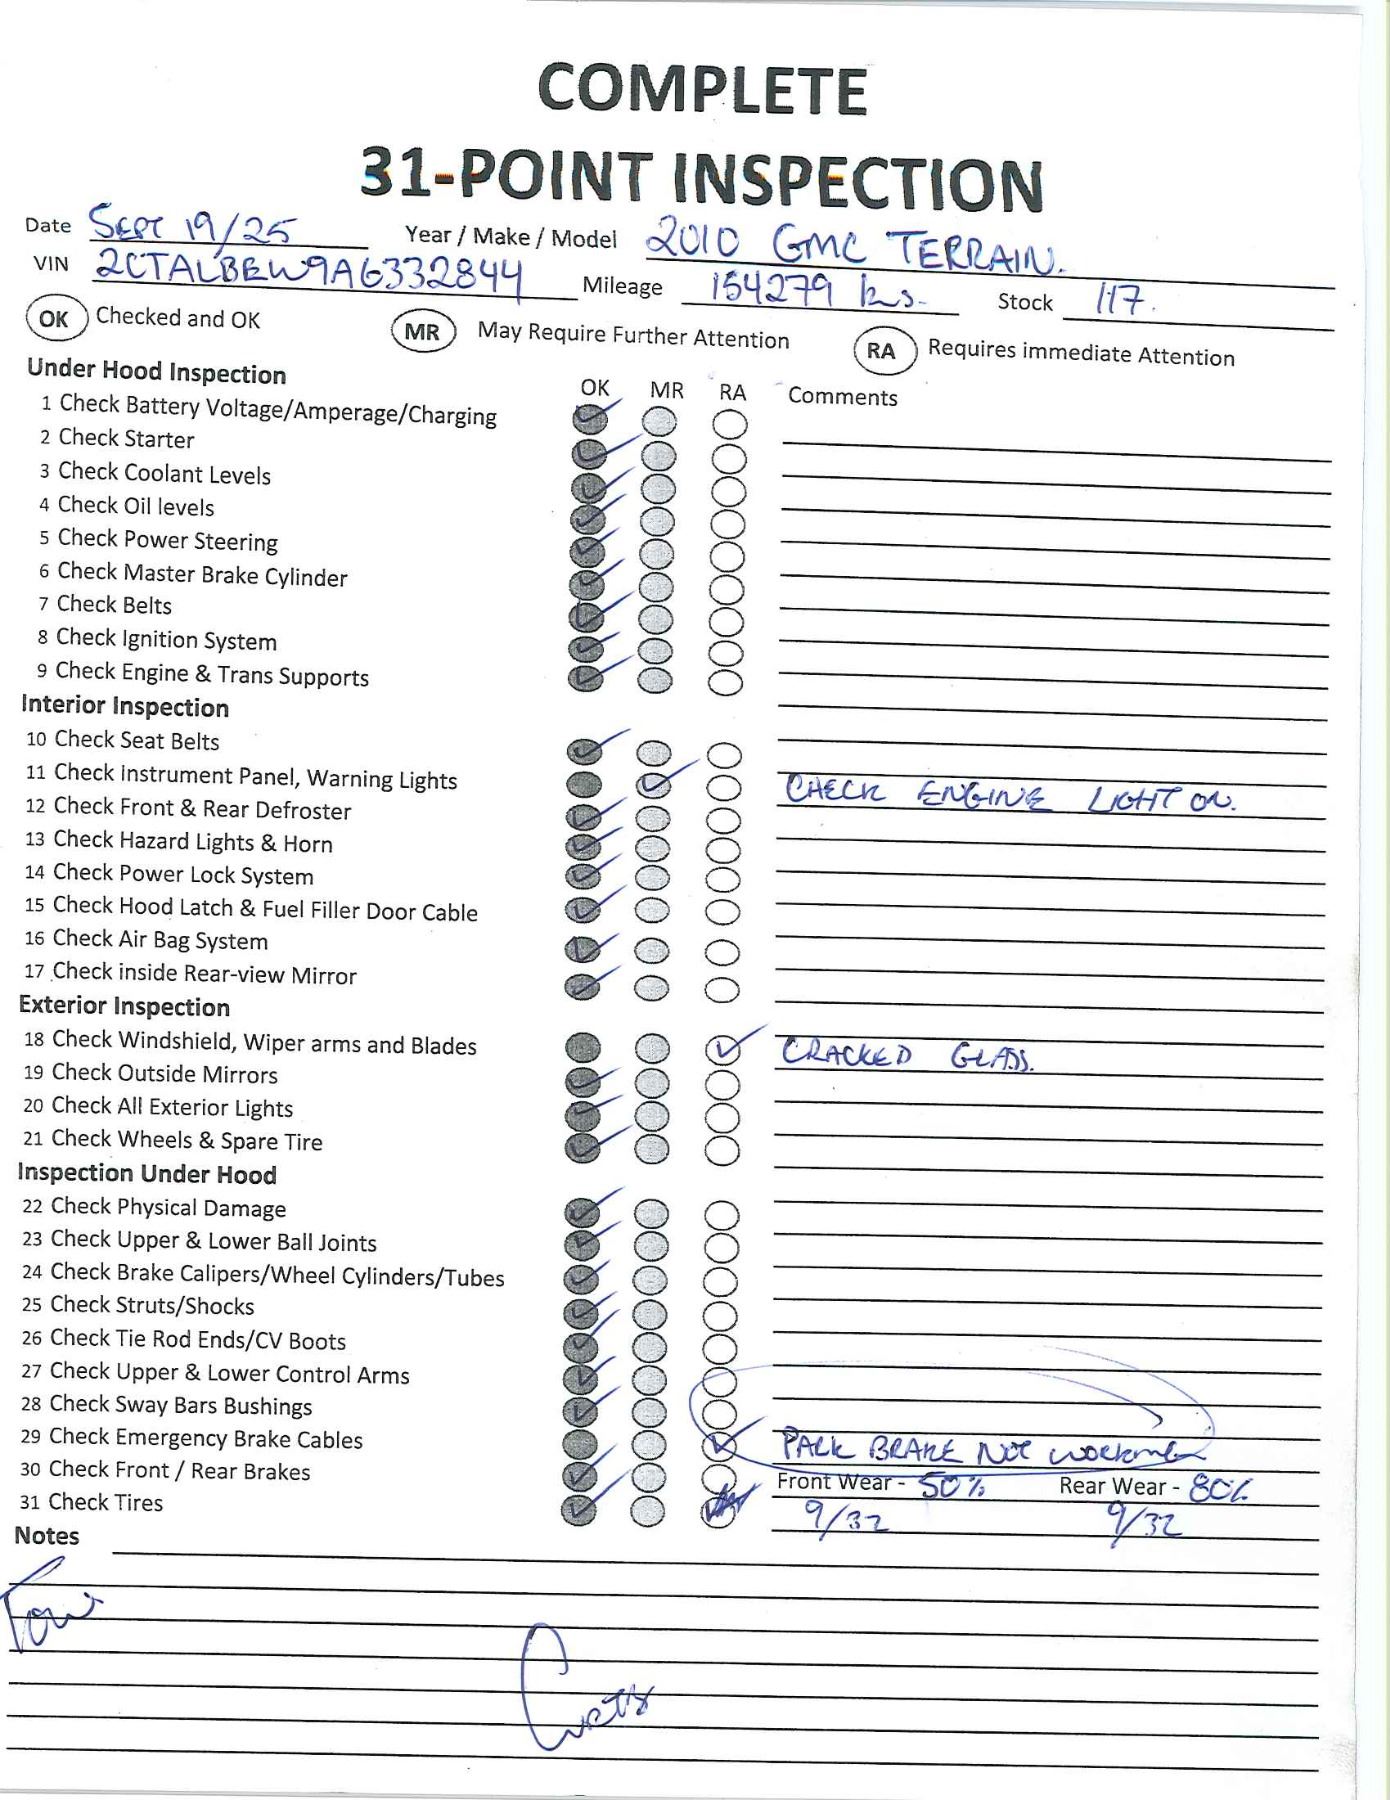 COMPLETE
31-POINT INSPECTION
Date SEPT 19/25 Year / Make / Model 2010 GMC TERRAIN.
VIN 2CTALBEW9A6332844 Mileage 154279 kms. Stock 117.
OK Checked and OK MR May Require Further Attention RA Requires immediate Attention
Under Hood Inspection OK MR RA Comments
1 Check Battery Voltage/Amperage/Charging
2 Check Starter
3 Check Coolant Levels
4 Check Oil levels
5 Check Power Steering
6 Check Master Brake Cylinder
7 Check Belts
8 Check Ignition System
9 Check Engine & Trans Supports
Interior Inspection
10 Check Seat Belts
11 Check instrument Panel, Warning Lights CHECK ENGINE LIGHT ON.
12 Check Front & Rear Defroster
13 Check Hazard Lights & Horn
14 Check Power Lock System
15 Check Hood Latch & Fuel Filler Door Cable
16 Check Air Bag System
17 Check inside Rear-view Mirror
Exterior Inspection
18 Check Windshield, Wiper arms and Blades CRACKED GLASS.
19 Check Outside Mirrors
20 Check All Exterior Lights
21 Check Wheels & Spare Tire
Inspection Under Hood
22 Check Physical Damage
23 Check Upper & Lower Ball Joints
24 Check Brake Calipers/Wheel Cylinders/Tubes
25 Check Struts/Shocks
26 Check Tie Rod Ends/CV Boots
27 Check Upper & Lower Control Arms
28 Check Sway Bars Bushings
29 Check Emergency Brake Cables PARK BRAKE NOT WORKING
30 Check Front / Rear Brakes Front Wear - 50% Rear Wear - 80%
31 Check Tires 9/32 9/32
Notes